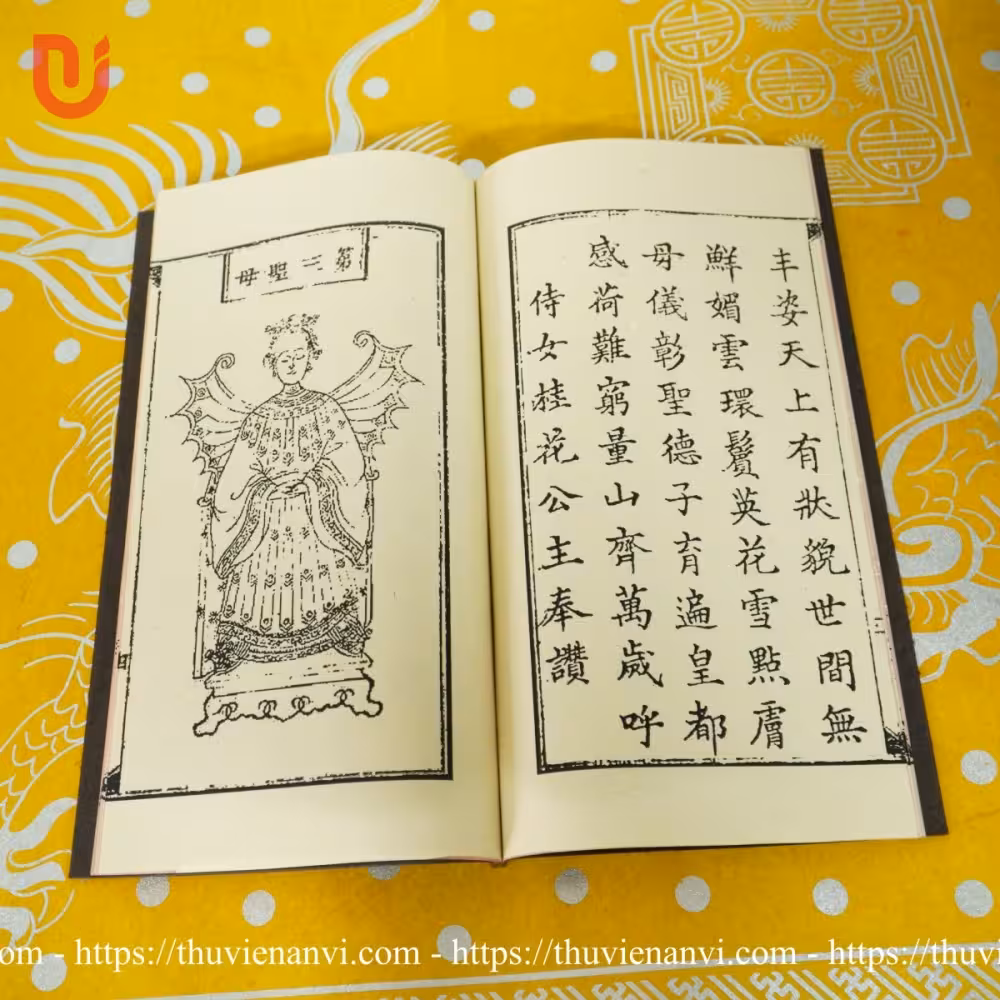 丰姿天上有狀貌世間無
鮮媚雲環鬢英花雪點膚
母儀彰聖德子育遍皇都
感荷難窮量山齊萬歲呼
侍女桂花公主奉讚
第三聖母
.com - https://thuvienanvi.com - https://thuvienanvi.com - https://thuvi